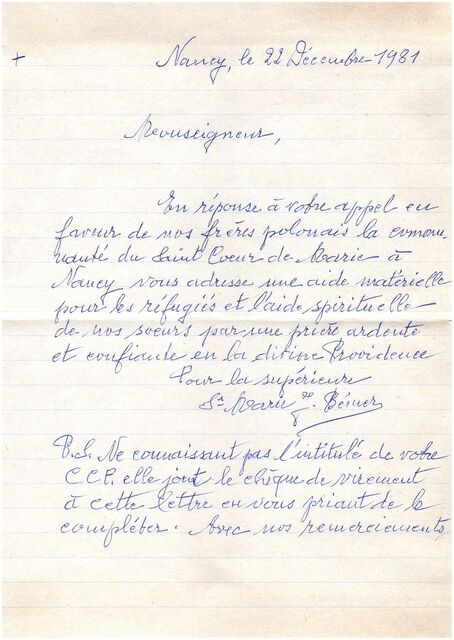 + Nancy, le 22 Décembre 1981
Monseigneur,
En réponse à votre appel en
faveur de nos frères polonais la commu-
nauté du Saint Coeur de Marie à
Nancy vous adresse une aide matérielle
pour les réfugiés et l'aide spirituelle
de nos soeurs par une prière ardente
et confiante en la divine Providence
Pour la supérieure
Sr Marie
P.S. Ne connaissant pas l'intitulé de votre
C.C.P. elle joint le chèque de virement
à cette lettre en vous priant de le
compléter. Avec nos remerciements